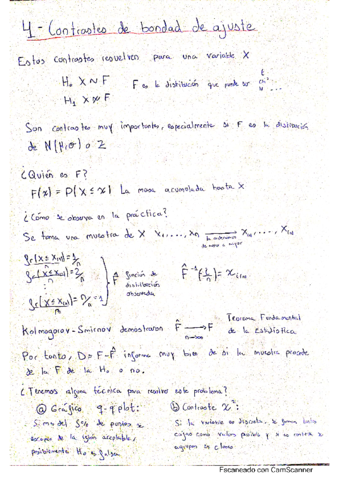 4.- Contrastes de bondad de ajuste
Estos contrastes resuelven para una variable X
H₀ X ~ F
F es la distribución que puede ser t, χ²
H₁ X ≁ F
Son contrastes muy importantes, especialmente si F es la distribución
de N(μ,σ) o Z
¿Quién es F?
F(x) = P(X ≤ x) La masa acumulada hasta X
¿Cómo se observa en la práctica?
Se toma una muestra de X x₁,...,xₙ → x₍₁₎,...,x₍ₙ₎
fr(X ≤ x₍₁₎) = 1/n
fr(X ≤ x₍₂₎) = 2/n
⋮
fr(X ≤ x₍ₙ₎) = n/n = 1
F̂ función de
distribución
observada
F̂⁻¹(i/n) = x₍ᵢ₎
Kolmogorov-Smirnov demostraron F̂ → F
n→∞
Teorema Fundamental
de la Estadística
Por tanto, D = F - F̂ informa muy bien de si la muestra procede
de la F de la H₀ o no.
¿Tenemos alguna técnica para resolver este problema?
ⓐ Gráfico q-q plot:
Si más del 5% de puntos se
escapan de la región aceptable,
posiblemente H₀ es falsa
ⓑ Contraste χ²:
Si la variable es discreta, se toman tantas
cajas como valores posibles y si es continua se
agrupan en clases
Escaneado con CamScanner